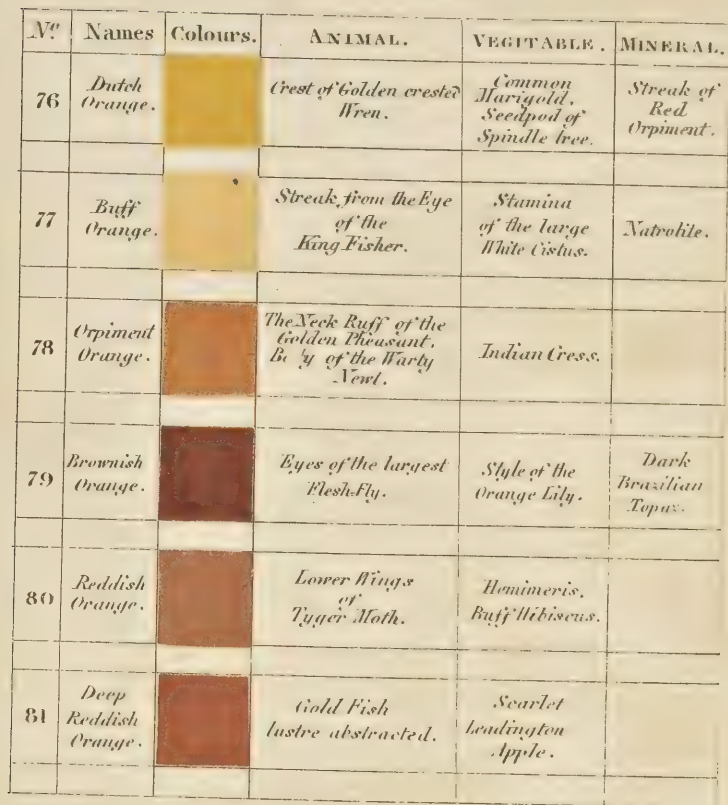 Nº Names Colours. ANIMAL. VEGITABLE. MINERAL.
76
Dutch
Orange.
Crest of Golden crested
Wren.
Common
Marigold.
Seedpod of
Spindle tree.
Streak of
Red
Orpiment.
77
Buff
Orange.
Streak from the Eye
of the
King Fisher.
Stamina
of the large
White Cistus.
Natrolite.
78
Orpiment
Orange.
The Neck Ruff of the
Golden Pheasant.
of the Warty
Newt.
Indian Cress.
79
Brownish
Orange.
Eyes of the largest
Flesh-Fly.
Style of the
Orange Lily.
Dark
Brazilian
Topaz.
80
Reddish
Orange.
Lower Wings
of
Tyger Moth.
Hemimeris.
Buff Hibiscus.
81
Deep
Reddish
Orange.
Gold Fish
lustre abstracted.
Scarlet
Leadington
Apple.